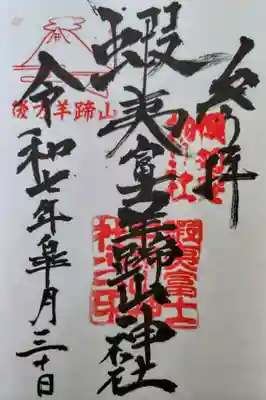 奉拝
蝦夷富士羊蹄山神社
令和七年皐月三十日
後方羊蹄山